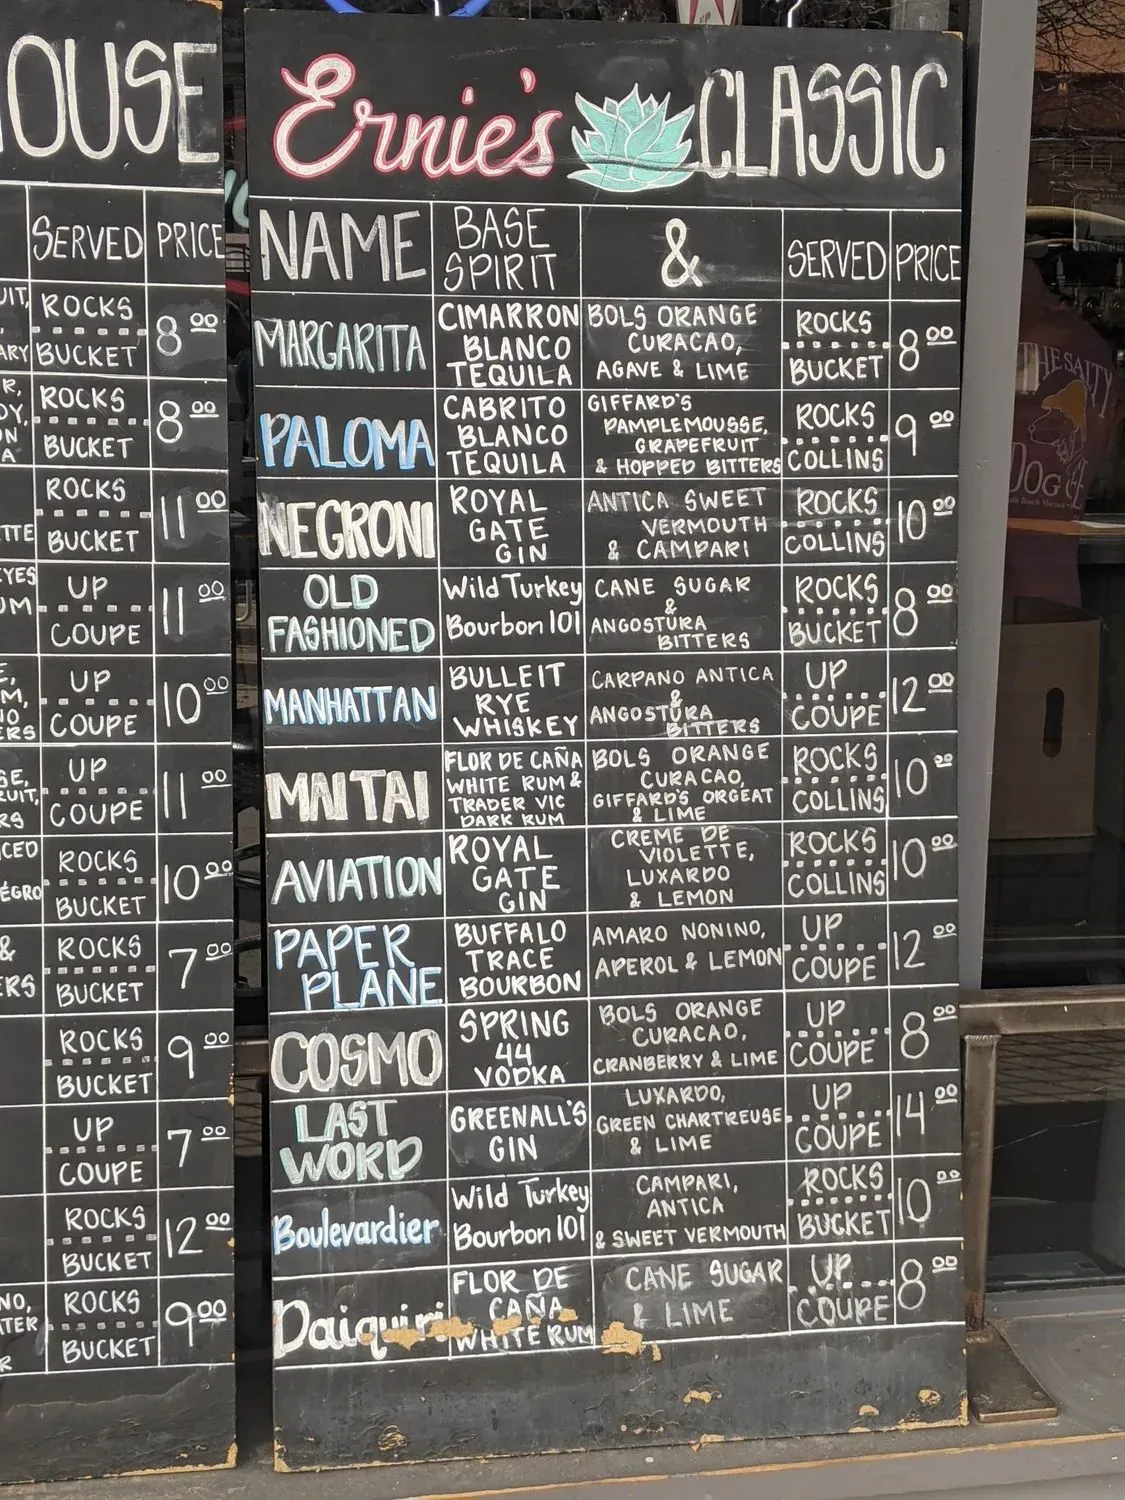 OUSE
SERVED PRICE
UIT, ROCKS 8 00
ARY BUCKET
R, ROCKS 8 00
DY,
ON BUCKET
A
ROCKS 11 00
TTE BUCKET
EYES UP 11 00
UM COUPE
E, UP 10 00
M,
NO COUPE
ERS
SE, UP 11 00
RUIT, COUPE
RS
ICED ROCKS 10 00
ÉGRO BUCKET
& ROCKS 7 00
ERS BUCKET
ROCKS 9 00
BUCKET
UP 7 00
COUPE
ROCKS 12 00
BUCKET
NO, ROCKS 9 00
TER BUCKET
R
Ernie's CLASSIC
NAME BASE SPIRIT & SERVED PRICE
MARGARITA CIMARRON BOLS ORANGE ROCKS 8 00
BLANCO CURACAO,
TEQUILA AGAVE & LIME BUCKET
PALOMA CABRITO GIFFARD'S ROCKS 9 00
BLANCO PAMPLEMOUSSE,
GRAPEFRUIT
TEQUILA & HOPPED BITTERS COLLINS
NEGRONI ROYAL ANTICA SWEET ROCKS 10 00
GATE VERMOUTH
GIN & CAMPARI COLLINS
OLD Wild Turkey CANE SUGAR ROCKS 8 00
&
FASHIONED Bourbon 101 ANGOSTURA BUCKET
BITTERS
MANHATTAN BULLEIT CARPANO ANTICA UP 12 00
RYE &
ANGOSTURA
WHISKEY BITTERS COUPE
MAI TAI FLOR DE CAÑA BOLS ORANGE ROCKS 10 00
WHITE RUM & CURACAO,
TRADER VIC GIFFARD'S ORGEAT COLLINS
DARK RUM & LIME
AVIATION ROYAL CREME DE ROCKS 10 00
VIOLETTE,
GATE LUXARDO
GIN & LEMON COLLINS
PAPER BUFFALO AMARO NONINO, UP 12 00
TRACE
PLANE BOURBON APEROL & LEMON COUPE
COSMO SPRING BOLS ORANGE UP 8 00
44 CURACAO,
VODKA CRANBERRY & LIME COUPE
LAST GREENALL'S LUXARDO, UP 14 00
GREEN CHARTREUSE
WORD GIN & LIME COUPE
Boulevardier Wild Turkey CAMPARI, ROCKS 10 00
ANTICA
Bourbon 101 & SWEET VERMOUTH BUCKET
Daiquiri FLOR DE CANE SUGAR UP 8 00
CAÑA & LIME COUPE
WHITE RUM
THE SALTY
DOG